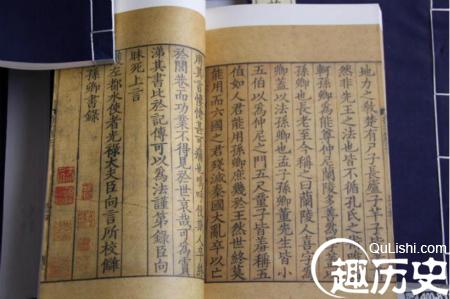 地力之敎楚有尸子長盧子芋子
然非先王之法也皆不循孔氏之
軻孫卿為能尊仲尼蘭陵多善為
卿也長老至今稱之曰蘭陵人喜字為
卿蓋以法孫卿也孟子孫卿董先生皆小
五伯以為仲尼之門五尺童子皆羞稱五
伯如人君能用孫卿庶幾於王然世終莫
能用而六國之君殘滅秦國大亂卒以亡
用其言悽愴甚可痛也嗚呼使斯人卒終
於閭巷而功業不得見於世哀哉可為霣
涕其書比於記傳可以為法謹第錄臣向
昧死上言
護左都水使者光祿大夫臣向言所校讎
孫卿書錄
QuLiShi.com
趣历史